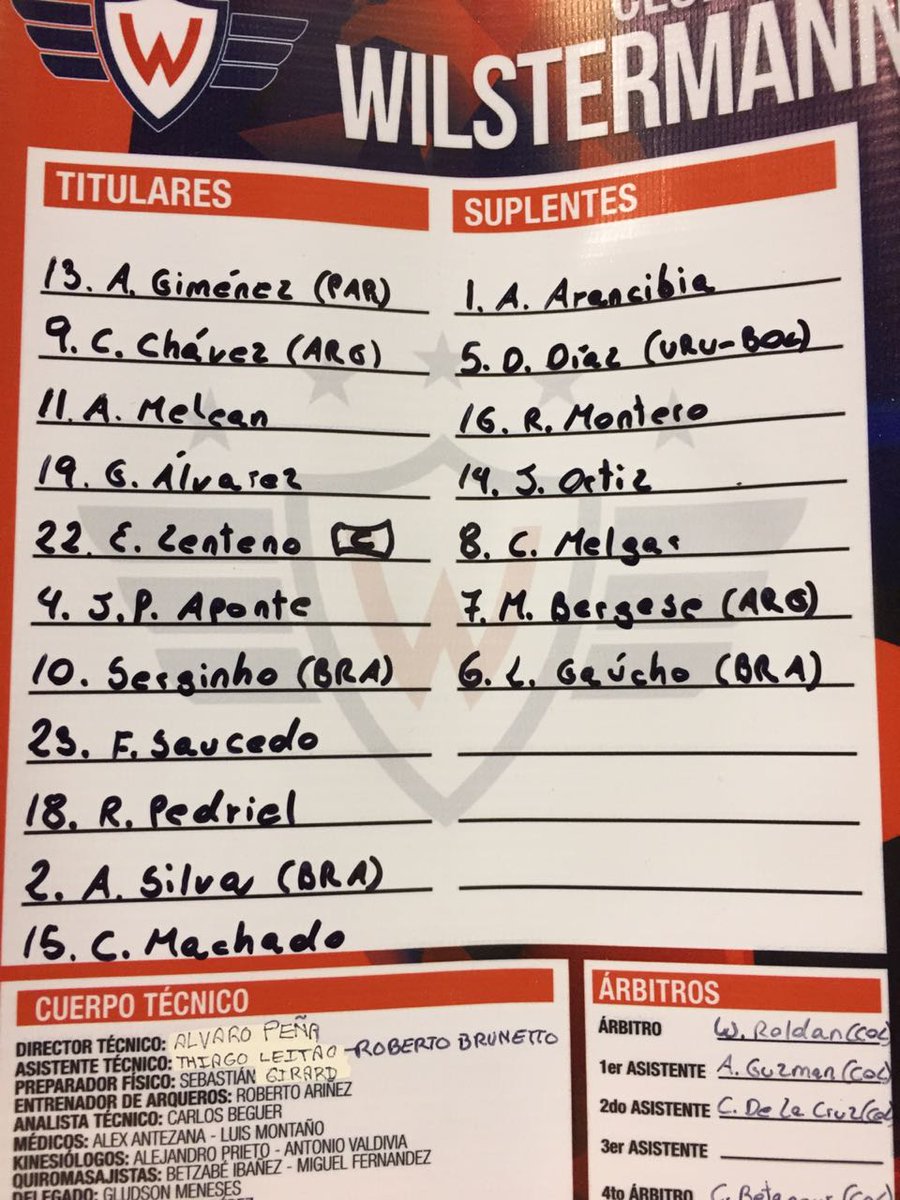 W
WILSTERMANN
TITULARES
13. A. Giménez (PAR)
9. C. Chávez (ARG)
11. A. Melean
19. G. Álvarez
22. E. Zenteno C
4. J.P. Aponte
10. Serginho (BRA)
23. F. Saucedo
18. R. Pedriel
2. A. Silva (BRA)
15. C. Machado
SUPLENTES
1. A. Arancibia
5. D. Díaz (URU-BOL)
16. R. Montero
14. J. Ortiz
8. C. Melgar
7. M. Bergese (ARG)
6. L. Gaúcho (BRA)
W
CUERPO TÉCNICO
DIRECTOR TÉCNICO: ALVARO PEÑA
ASISTENTE TÉCNICO: THIAGO LEITAO - ROBERTO BRUNETTO
PREPARADOR FÍSICO: SEBASTIÁN GIRARD
ENTRENADOR DE ARQUEROS: ROBERTO ARIÑEZ
ANALISTA TÉCNICO: CARLOS BEGUER
MÉDICOS: ALEX ANTEZANA - LUIS MONTAÑO
KINESIÓLOGOS: ALEJANDRO PRIETO - ANTONIO VALDIVIA
QUIROMASAJISTAS: BETZABÉ IBAÑEZ - MIGUEL FERNANDEZ
DELEGADO: GLUDSON MENESES
ÁRBITROS
ÁRBITRO W. Roldan (COL)
1er ASISTENTE A. Guzman (COL)
2do ASISTENTE C. De La Cruz (COL)
3er ASISTENTE
4to ÁRBITRO